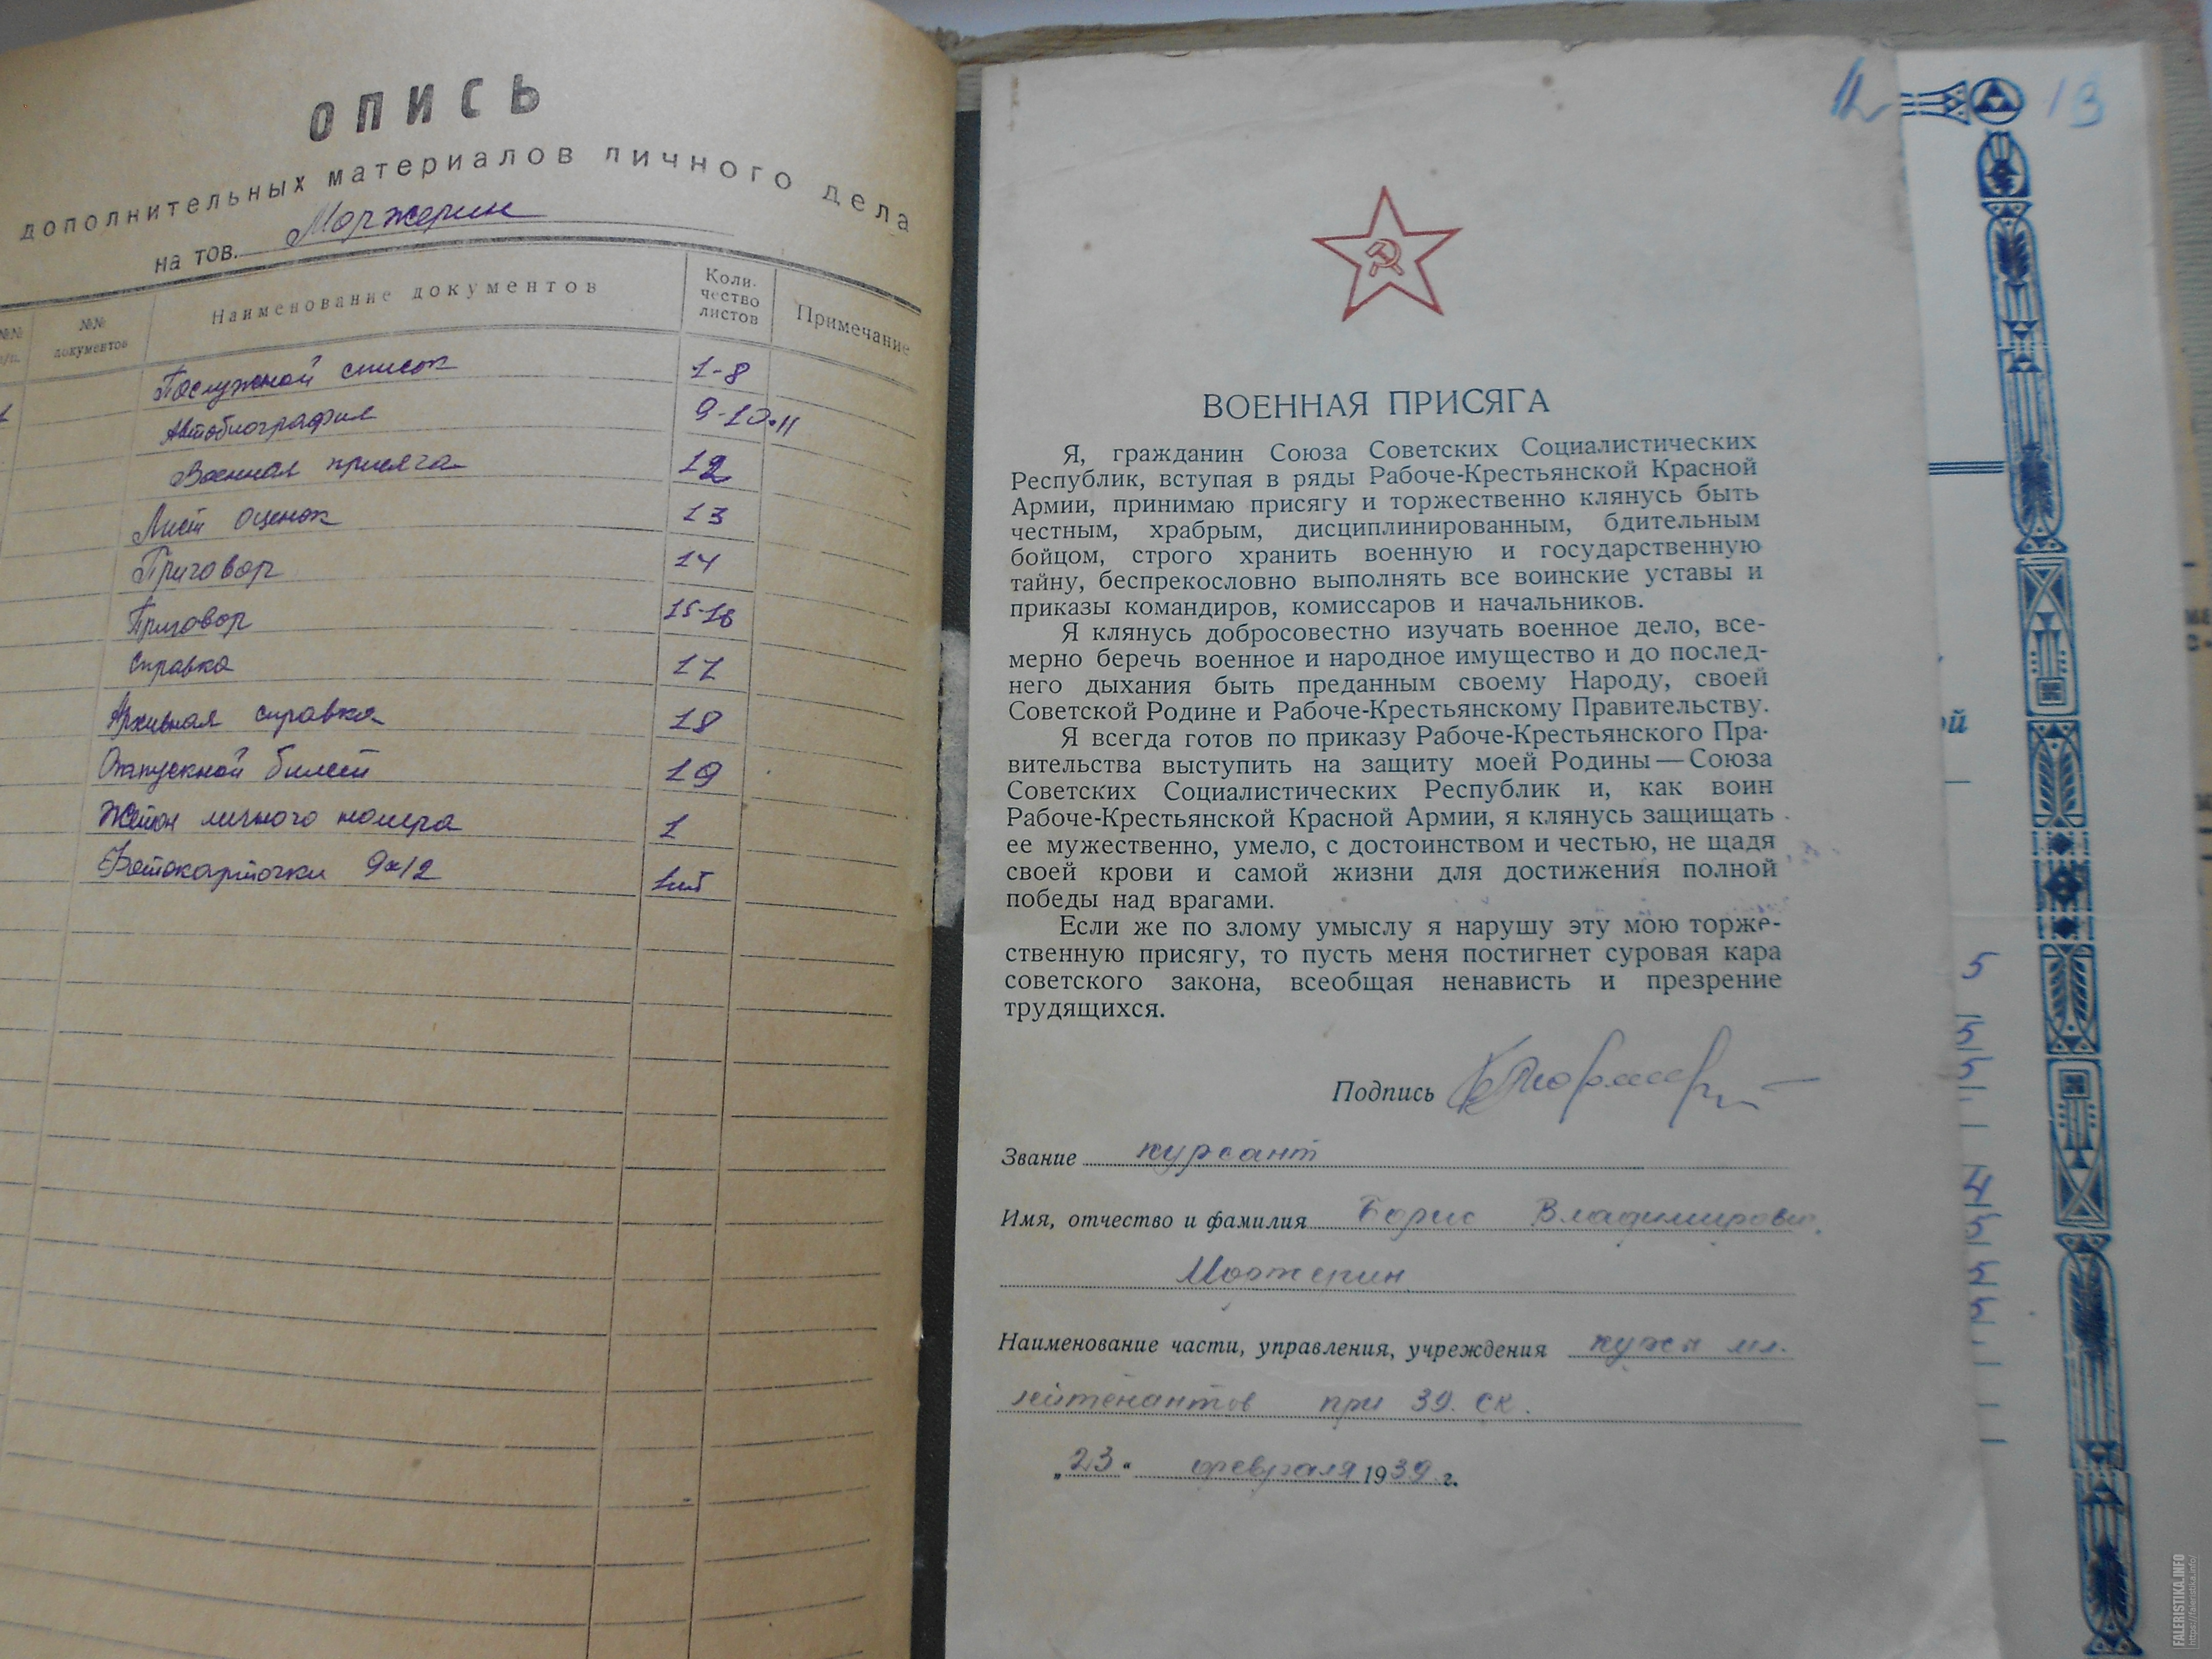 ОПИСЬ
дополнительных материалов личного дела
на тов. Моржерин
№№ п/п.
№№ документов
Наименование документов
Коли-
чество
листов
Примечание
1 Послужной список 1-8
Автобиография 9-10.11
Военная присяга 12
Лист оценок 13
Приговор 14
Приговор 15-16
Справка 17
Архивная справка 18
Отпускной билет 19
Жетон личного номера 1
Фотокарточки 9х12 1шт
12
ВОЕННАЯ ПРИСЯГА
Я, гражданин Союза Советских Социалистических
Республик, вступая в ряды Рабоче-Крестьянской Красной
Армии, принимаю присягу и торжественно клянусь быть
честным, храбрым, дисциплинированным, бдительным
бойцом, строго хранить военную и государственную
тайну, беспрекословно выполнять все воинские уставы и
приказы командиров, комиссаров и начальников.
Я клянусь добросовестно изучать военное дело, все-
мерно беречь военное и народное имущество и до послед-
него дыхания быть преданным своему Народу, своей
Советской Родине и Рабоче-Крестьянскому Правительству.
Я всегда готов по приказу Рабоче-Крестьянского Пра-
вительства выступить на защиту моей Родины — Союза
Советских Социалистических Республик и, как воин
Рабоче-Крестьянской Красной Армии, я клянусь защищать
ее мужественно, умело, с достоинством и честью, не щадя
своей крови и самой жизни для достижения полной
победы над врагами.
Если же по злому умыслу я нарушу эту мою торже-
ственную присягу, то пусть меня постигнет суровая кара
советского закона, всеобщая ненависть и презрение
трудящихся.
Подпись
Звание курсант
Имя, отчество и фамилия Борис Владимирович
Моржерин
Наименование части, управления, учреждения курсы мл.
лейтенантов при 39. ск.
„23“ февраля 1939 г.
13
ой
5
5
5
4
5
5
5
FALERISTIKA.INFO
https://faleristika.info/